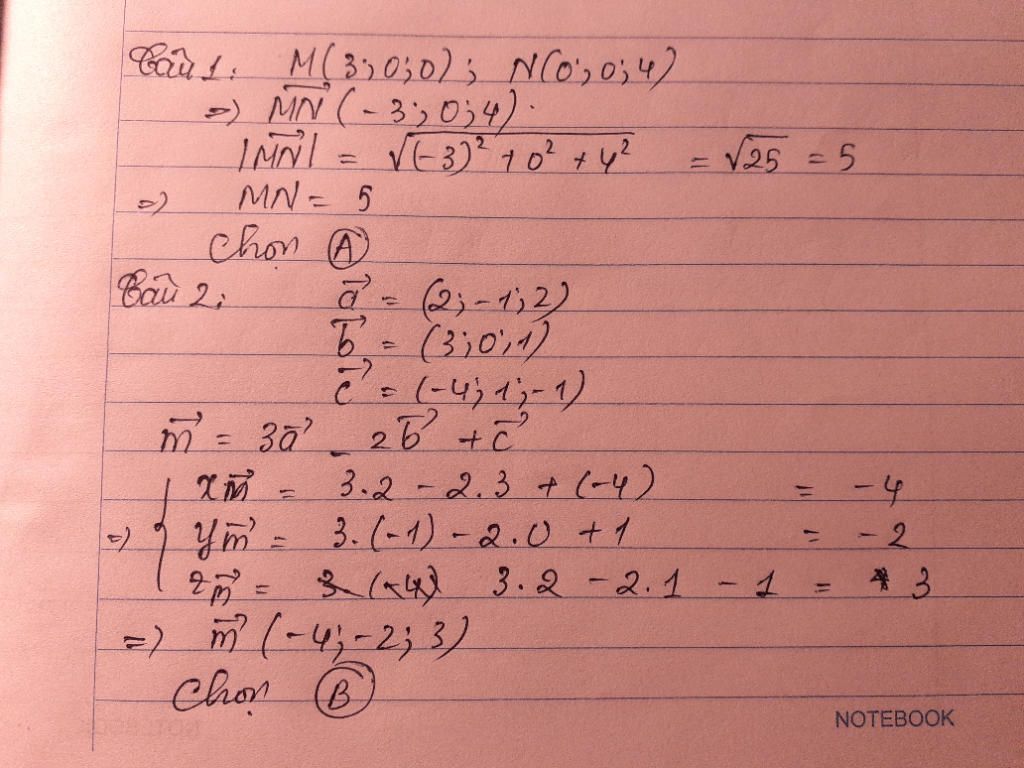 Câu 1: M(3;0;0); N(0;0;4)
=> \overrightarrow{MN} (-3;0;4).
|\overrightarrow{MN}| = √((-3)² + 0² + 4²) = √25 = 5
=> MN = 5
Chọn Ⓐ
Câu 2: \vec{a} = (2;-1;2)
\vec{b} = (3;0;1)
\vec{c} = (-4;1;-1)
\vec{m} = 3\vec{a} - 2\vec{b} + \vec{c}
=> { x\vec{m} = 3.2 - 2.3 + (-4) = -4
y\vec{m} = 3.(-1) - 2.0 + 1 = -2
z\vec{m} = 3.2 - 2.1 - 1 = 3
=> \vec{m} (-4;-2;3)
Chọn Ⓑ
NOTEBOOK